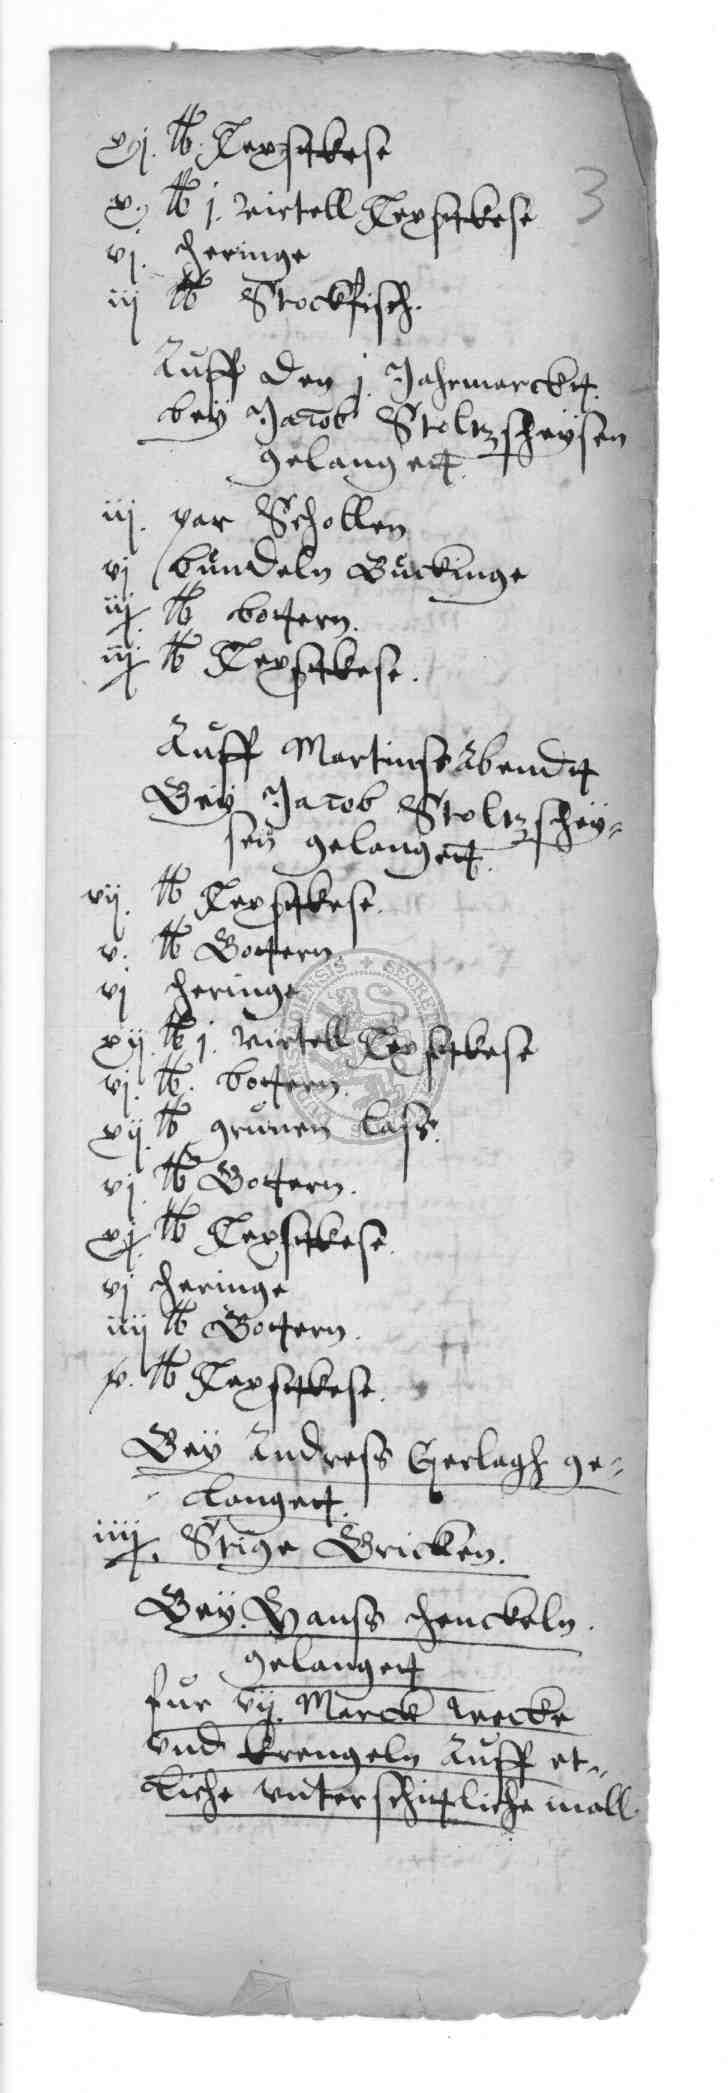 xij. lb. Texstkese
x. lb j. virtell Texstkese
3
vj. heringe
iij lb Stockfisch.
Auff den j. Jahrmarckt.
bey Jacob Stoltzscheysen
gelangett.
iij. par Schollen
vj bundeln Buckinge
iij lb bottern.
iij lb Texstkese.
Auff Martinss Abendt
Bey Jacob Stoltzschey-
sen gelangett.
vij. lb Texstkese.
v. lb Bottern.
vj heringe
xij. lb j. virtell Texstkese
vj. lb. bottern.
xij. lb grunen lass.
vj. lb Bottern.
xj. lb Texstkese.
vj heringe
iiij lb Bottern.
x. lb Texstkese.
Bey Andress Gerlagh ge-
langett.
iiij. Stige Bricken.
Bey Hanss Henckeln.
gelangett
fur vij. Marck wecke
vnd krengeln Auff et-
liche vnterschittliche mall.